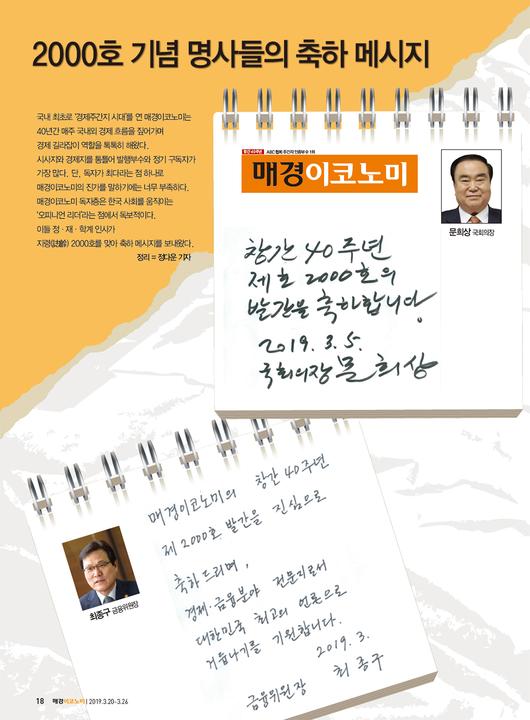 2000호 기념 명사들의 축하 메시지
국내 최초로 '경제주간지 시대'를 연 매경이코노미는
40년간 매주 국내외 경제 흐름을 짚어가며
경제 길라잡이 역할을 톡톡히 해왔다.
시사지와 경제지를 통틀어 발행부수와 정기 구독자가
가장 많다. 단, 독자가 최다라는 점 하나로
매경이코노미의 진가를 말하기에는 너무 부족하다.
매경이코노미 독자층은 한국 사회를 움직이는
'오피니언 리더'라는 점에서 독보적이다.
이들 정·재·학계 인사가
지령(誌齡) 2000호를 맞아 축하 메시지를 보내왔다.
정리 = 정다운 기자
창간 40주년 ABC협회 주간지 인증부수 1위
매경이코노미
문희상 국회의장
창간 40주년
제호 2000호의
발간을 축하합니다
2019. 3. 5.
국회의장 문희상
매경이코노미의 창간 40주년
제 2000호 발간을 진심으로
축하드리며,
경제·금융분야 전문지로서
대한민국 최고의 언론으로
거듭나기를 기원합니다.
2019. 3.
금융위원장 최종구
최종구 금융위원장
18 매경이코노미 | 2019.3.20~3.26